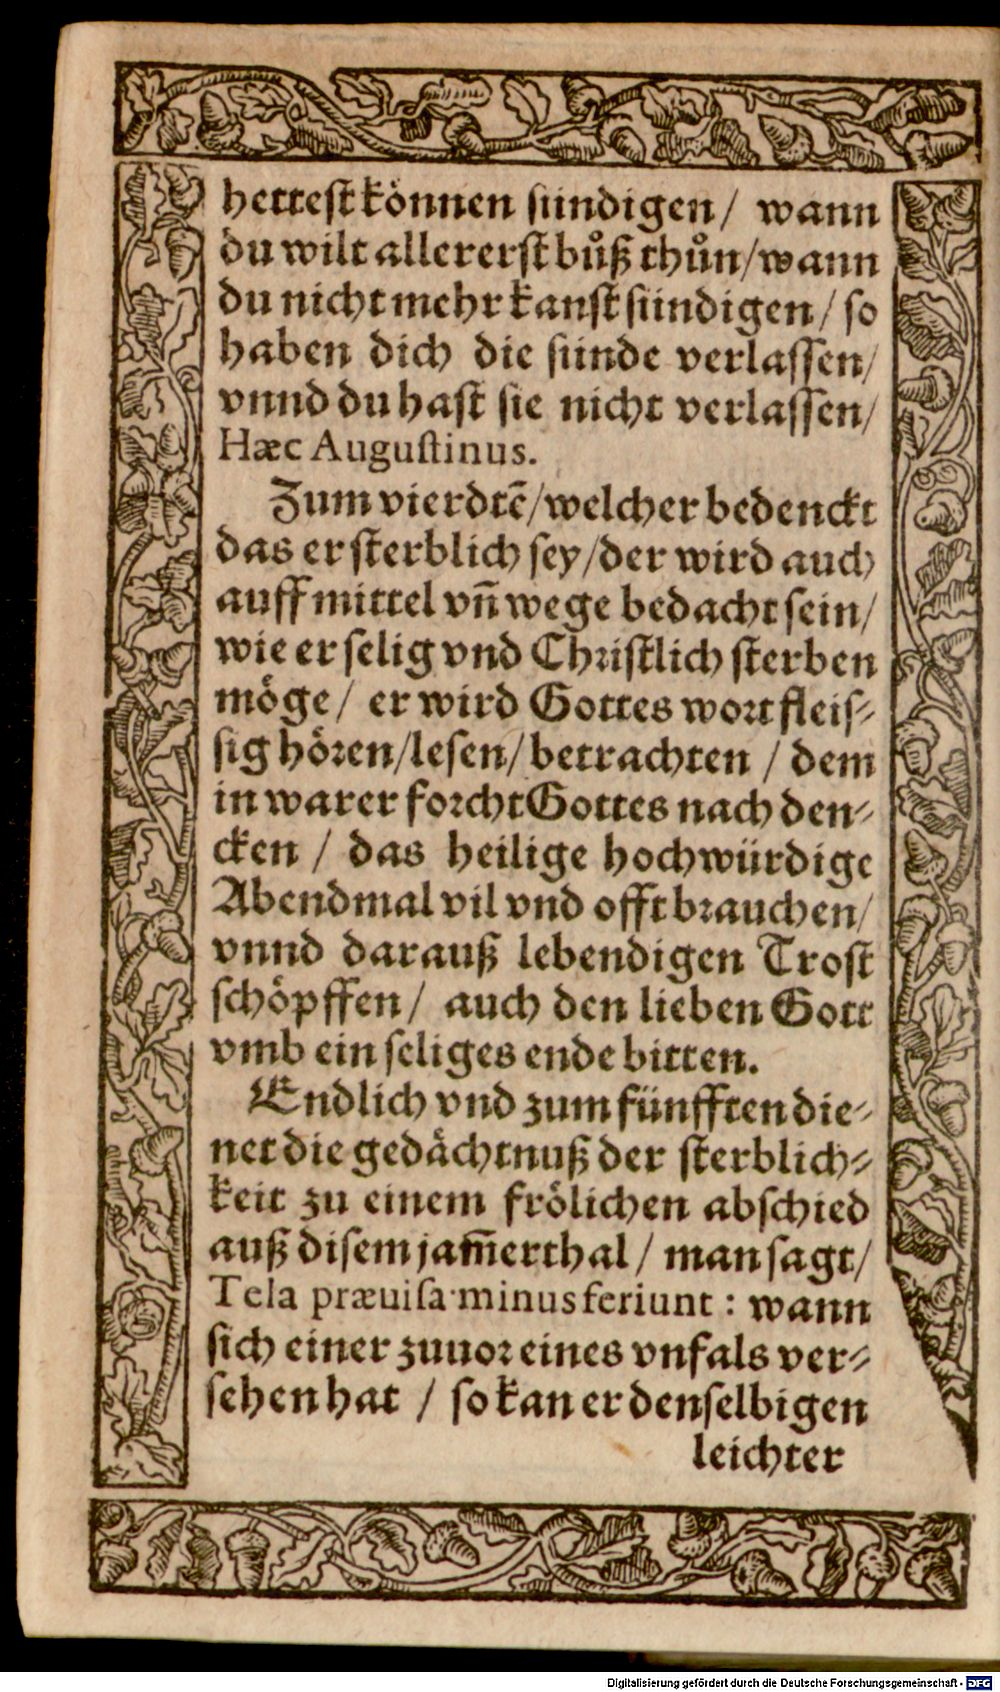 hettest können sündigen/ wann
du wilt allererst bůß thůn/wann
du nicht mehr kanst sündigen/ so
haben dich die sünde verlassen/
vnnd du hast sie nicht verlassen/
Hæc Augustinus.
Zum vierdtē/welcher bedenckt
das er sterblich sey/der wird auch
auff mittel vn̄ wege bedacht sein/
wie er selig vnd Christlich sterben
möge/ er wird Gottes wort fleis-
sig hören/lesen/betrachten / dem
in warer forcht Gottes nach den-
cken / das heilige hochwürdige
Abendmal vil vnd offt brauchen/
vnnd darauß lebendigen Trost
schöpffen/ auch den lieben Gott
vmb ein seliges ende bitten.
Endlich vnd zum fünfften die-
net die gedächtnuß der sterblich-
keit zu einem frölichen abschied
auß disem jam̄erthal / man sagt/
Tela præuisa minus feriunt : wann
sich einer zuuor eines vnfals ver-
sehen hat / so kan er denselbigen
leichter
Digitalisierung gefördert durch die Deutsche Forschungsgemeinschaft - DFG